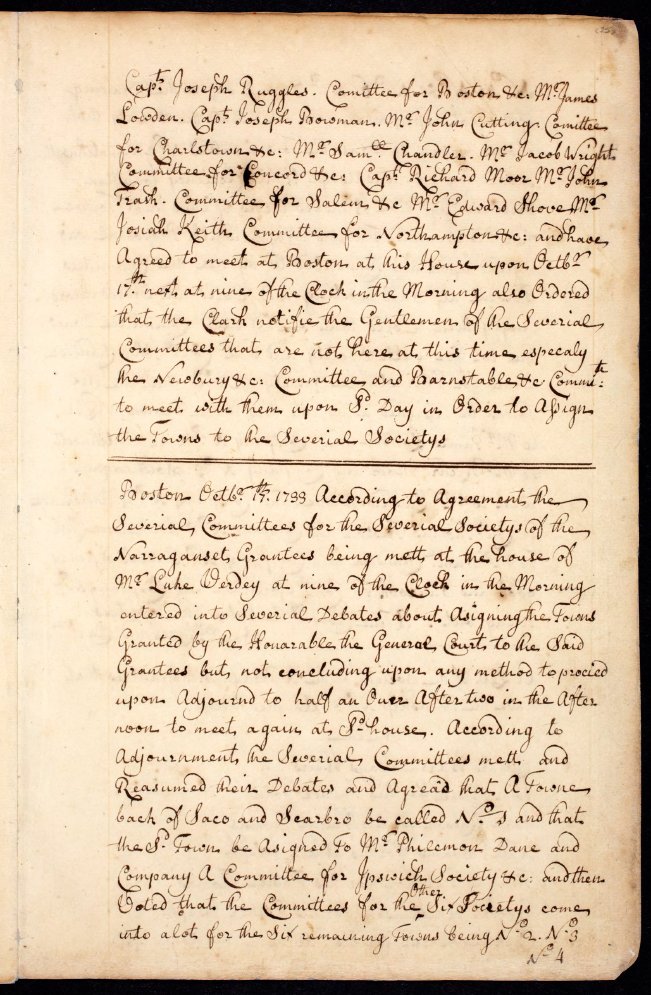 Capt. Joseph Ruggles. Comittee for Boston &c: Mr. James
Lowden. Capt. Joseph Bowman. Mr. John Cutting Comittee
for Charlstown &c: Mr. Samll. Chandler. Mr. Jacob Wright
Committee for Concord &c: Capt. Richard Moor Mr. John
Trask. Committee for Salem &c Mr. Edward Shove Mr.
Josiah Keith Committee for Northampton &c: and have
Agreed to meet at Boston at this House upon Octbr.
17th. next at nine of the Clock in the Morning also Ordered
that the Clark notifie the Gentlemen of the Severial
Committees that are not here at this time especaly
the Newbury &c: Committee and Barnstable &c Committ:
to meet with them upon Sd. Day in Order to Assign
the Towns to the Severial Societys
Boston Octbr. 17th. 1733 According to Agreement the
Severial Committees for the Severial Societys of the
Narraganset Grantees being mett at the house of
Mr. Luke Verdey at nine of the Clock in the Morning
entered into Severial Debates about Asigning the Towns
Granted by the Honarable the General Court to the Said
Grantees but not concluding upon any method to procied
upon Adjournd to half an Ouer After two in the After
noon to meet again at Sd. house. According to
Adjournment the Severial Committees mett and
Reasumed their Debates and Agread that A Towne
back of Saco and Scarbro be called No. 1 and that
the Sd. Town be Asigned To Mr. Philemon Dane and
Company A Committee for Ipswich Society &c: and then
Voted that the Committees for the Other Six Societys come
into a lot for the Six remaining Towns being No. 2. No. 3
No. 4